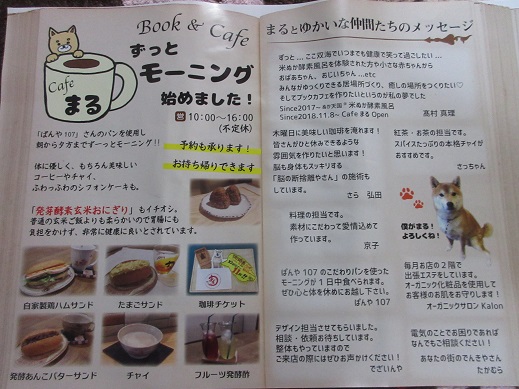 Book & Cafe
ずっと
モーニング
始めました！
Cafe
まる
営 10:00〜16:00
(不定休)
「ぱんや107」さんのパンを使用し
朝から夕方までず〜っとモーニング!!
予約も承ります！
お持ち帰りできます
体に優しく、もちろん美味しい
コーヒーやチャイ、
ふわっふわのシフォンケーキも。
「発芽酵素玄米おにぎり」もイチオシ。
普通の玄米ご飯よりも柔らかいので胃腸にも
負担をかけず、非常に健康に良いとされています。
自家製鶏ハムサンド
たまごサンド
珈琲チケット
発酵あんこバターサンド
チャイ
フルーツ発酵酢
まるとゆかいな仲間たちのメッセージ
ずっと… ここ双海でいつまでも健康で笑って過ごしたい…
米ぬか酵素風呂を体験された方や小さな赤ちゃんから
おばあちゃん、おじいちゃん …etc
みんながゆっくりできる居場所づくり、癒しの場所をつくりたいっ♡
そしてブックカフェを作りたいというのが私の夢でした
Since2017〜 ぬか天国°米ぬか酵素風呂
Since2018.11.8〜 Cafe まる Open
髙村 真理
木曜日に美味しい珈琲を淹れます！
皆さんがひと休みできるような
雰囲気を作りたいと思います！
脳も身体もスッキリする
「脳の断捨離やさん」の施術も
しています。
さら 弘田
紅茶・お茶の担当です。
スパイスたっぷりの本格チャイが
おすすめです。
さっちゃん
料理の担当です。
素材にこだわって愛情込めて
作っています。
京子
僕がまる！
よろしくね！
ぱんや 107 のこだわりパンを使った
モーニングが１日中食べられます。
ぜひ心と体を休めにお越し下さい。
ぱんや 107
毎月お店の２階で
出張エステをしています。
オーガニック化粧品を使用して
お客様のお肌をお守りします！
オーガニックサロン Kalon
デザイン担当させてもらいました。
相談・依頼お待ちしています。
整体もやっていますので
ご来店の際にはぜひお声かけください！
でざいんや
電気のことでお困りであれば
なんでもご相談ください！
あなたの街のでんきやさん
たかむら